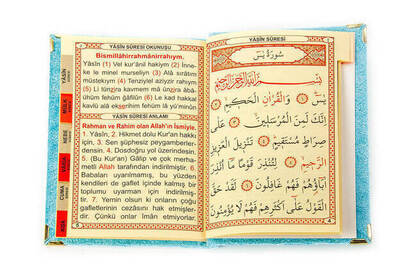 YÂSÎN SÛRESİ OKUNUŞU
Bismillâhirrahmânirrahym.
Yâsîn (1) Vel kur'ânil hakyim (2) İnne-
ke le minel murseliyn (3) Alâ sırâtım
müstekıym (4) Tenziylel aziyzir rahiym
(5) Li tünzira kavmem mâ ünzira âbâ-
ühüm fehüm gâfilûn (6) Le kad hakkal
kavlü alâ ekserihim fehüm lâ yü'minûn.
YÂSÎN SÛRESİ ANLAMI
Rahman ve Rahim olan Allah'ın İsmiyle,
1. Yâsîn, 2. Hikmet dolu Kur'an hakkı
için, 3. Sen şüphesiz peygamberler-
densin. 4. Dosdoğru yol üzerindesin.
5. (Bu Kur'an) Gâlip ve çok merha-
metli Allah tarafından indirilmiştir. 6.
Babaları uyarılmamış, bu yüzden
kendileri de gaflet içinde kalmış bir
toplumu uyarman için indirilmiş-
tir. 7. Yemin olsun ki onların çoğu
gafletlerinin cezasını hak etmişler-
dir. Çünkü onlar îman etmiyorlar.
YÂSÎN
MÜLK
NEBE
VAKIA
CUMA
YÂSÎN SÛRESİ
سُورَةُ يٰسٓ
بِسْمِ اللّٰهِ الرَّحْمٰنِ الرَّحِيمِ
يٰسٓ ﴿١﴾ وَالْقُرْاٰنِ الْحَكِيمِ ﴿٢﴾
اِنَّكَ لَمِنَ الْمُرْسَلِينَ ﴿٣﴾ عَلٰى
صِرَاطٍ مُسْتَقِيمٍ ﴿٤﴾ تَنْزِيلَ الْعَزِيزِ
الرَّحِيمِ ﴿٥﴾ لِتُنْذِرَ قَوْمًا مَٓا اُنْذِرَ
اٰبَٓاؤُهُمْ فَهُمْ غَافِلُونَ ﴿٦﴾ لَقَدْ حَقَّ
الْقَوْلُ عَلٰٓى اَكْثَرِهِمْ فَهُمْ لَا يُؤْمِنُونَ
4